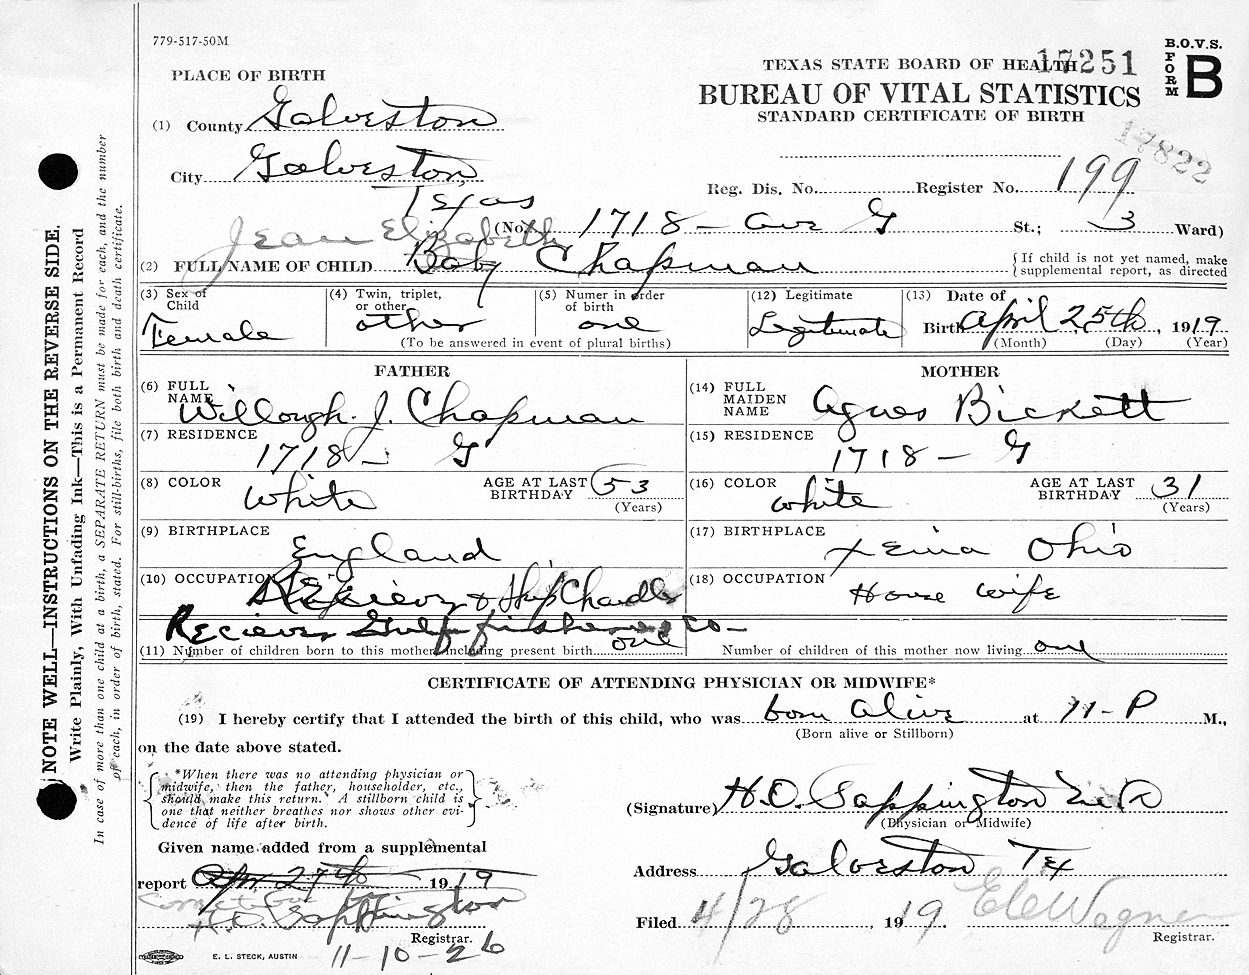 779-517-50M
B.O.V.S.
FORM B
17251
TEXAS STATE BOARD OF HEALTH
BUREAU OF VITAL STATISTICS
STANDARD CERTIFICATE OF BIRTH
17822
PLACE OF BIRTH
(1) County Galveston
City Galveston,
Texas
Reg. Dis. No. Register No. 199
(No. 1718 - ave G St.; 3 Ward)
Jean Elizabeth
(2) FULL NAME OF CHILD Baby Chapman
{If child is not yet named, make
supplemental report, as directed
(3) Sex of Child Female
(4) Twin, triplet, or other other
(5) Numer in order of birth one
(To be answered in event of plural births)
(12) Legitimate Legitimate
(13) Date of Birth April 25th, 1919
(Month) (Day) (Year)
FATHER
(6) FULL NAME Willough. J. Chapman
(7) RESIDENCE 1718 - G
(8) COLOR White
AGE AT LAST BIRTHDAY 53
(Years)
(9) BIRTHPLACE England
(10) OCCUPATION & Ship Chandler
Reciever Gulf fisheries Co-
MOTHER
(14) FULL MAIDEN NAME Agnes Bickett
(15) RESIDENCE 1718 - G
(16) COLOR White
AGE AT LAST BIRTHDAY 31
(Years)
(17) BIRTHPLACE Xenia Ohio
(18) OCCUPATION House wife
(11) Number of children born to this mother, including present birth one
Number of children of this mother now living one
CERTIFICATE OF ATTENDING PHYSICIAN OR MIDWIFE*
(19) I hereby certify that I attended the birth of this child, who was born alive at 11 - P M.,
(Born alive or Stillborn)
on the date above stated.
{*When there was no attending physician or
midwife, then the father, householder, etc.,
should make this return. A stillborn child is
one that neither breathes nor shows other evi-
dence of life after birth.}
(Signature) H.O. Sappington M.D.
(Physician or Midwife)
Given name added from a supplemental
report Apr 27th 1919
H.O. Sappington
Registrar.
11-10-26
Address Galveston Tex
Filed 4/28, 1919. Registrar.
E. L. STECK, AUSTIN
NOTE WELL—INSTRUCTIONS ON THE REVERSE SIDE.
Write Plainly, With Unfading Ink—This is a Permanent Record
In case of more than one child at a birth, a SEPARATE RETURN must be made for each, and the number
of each, in order of birth, stated. For still-births, file both birth and death certificate.